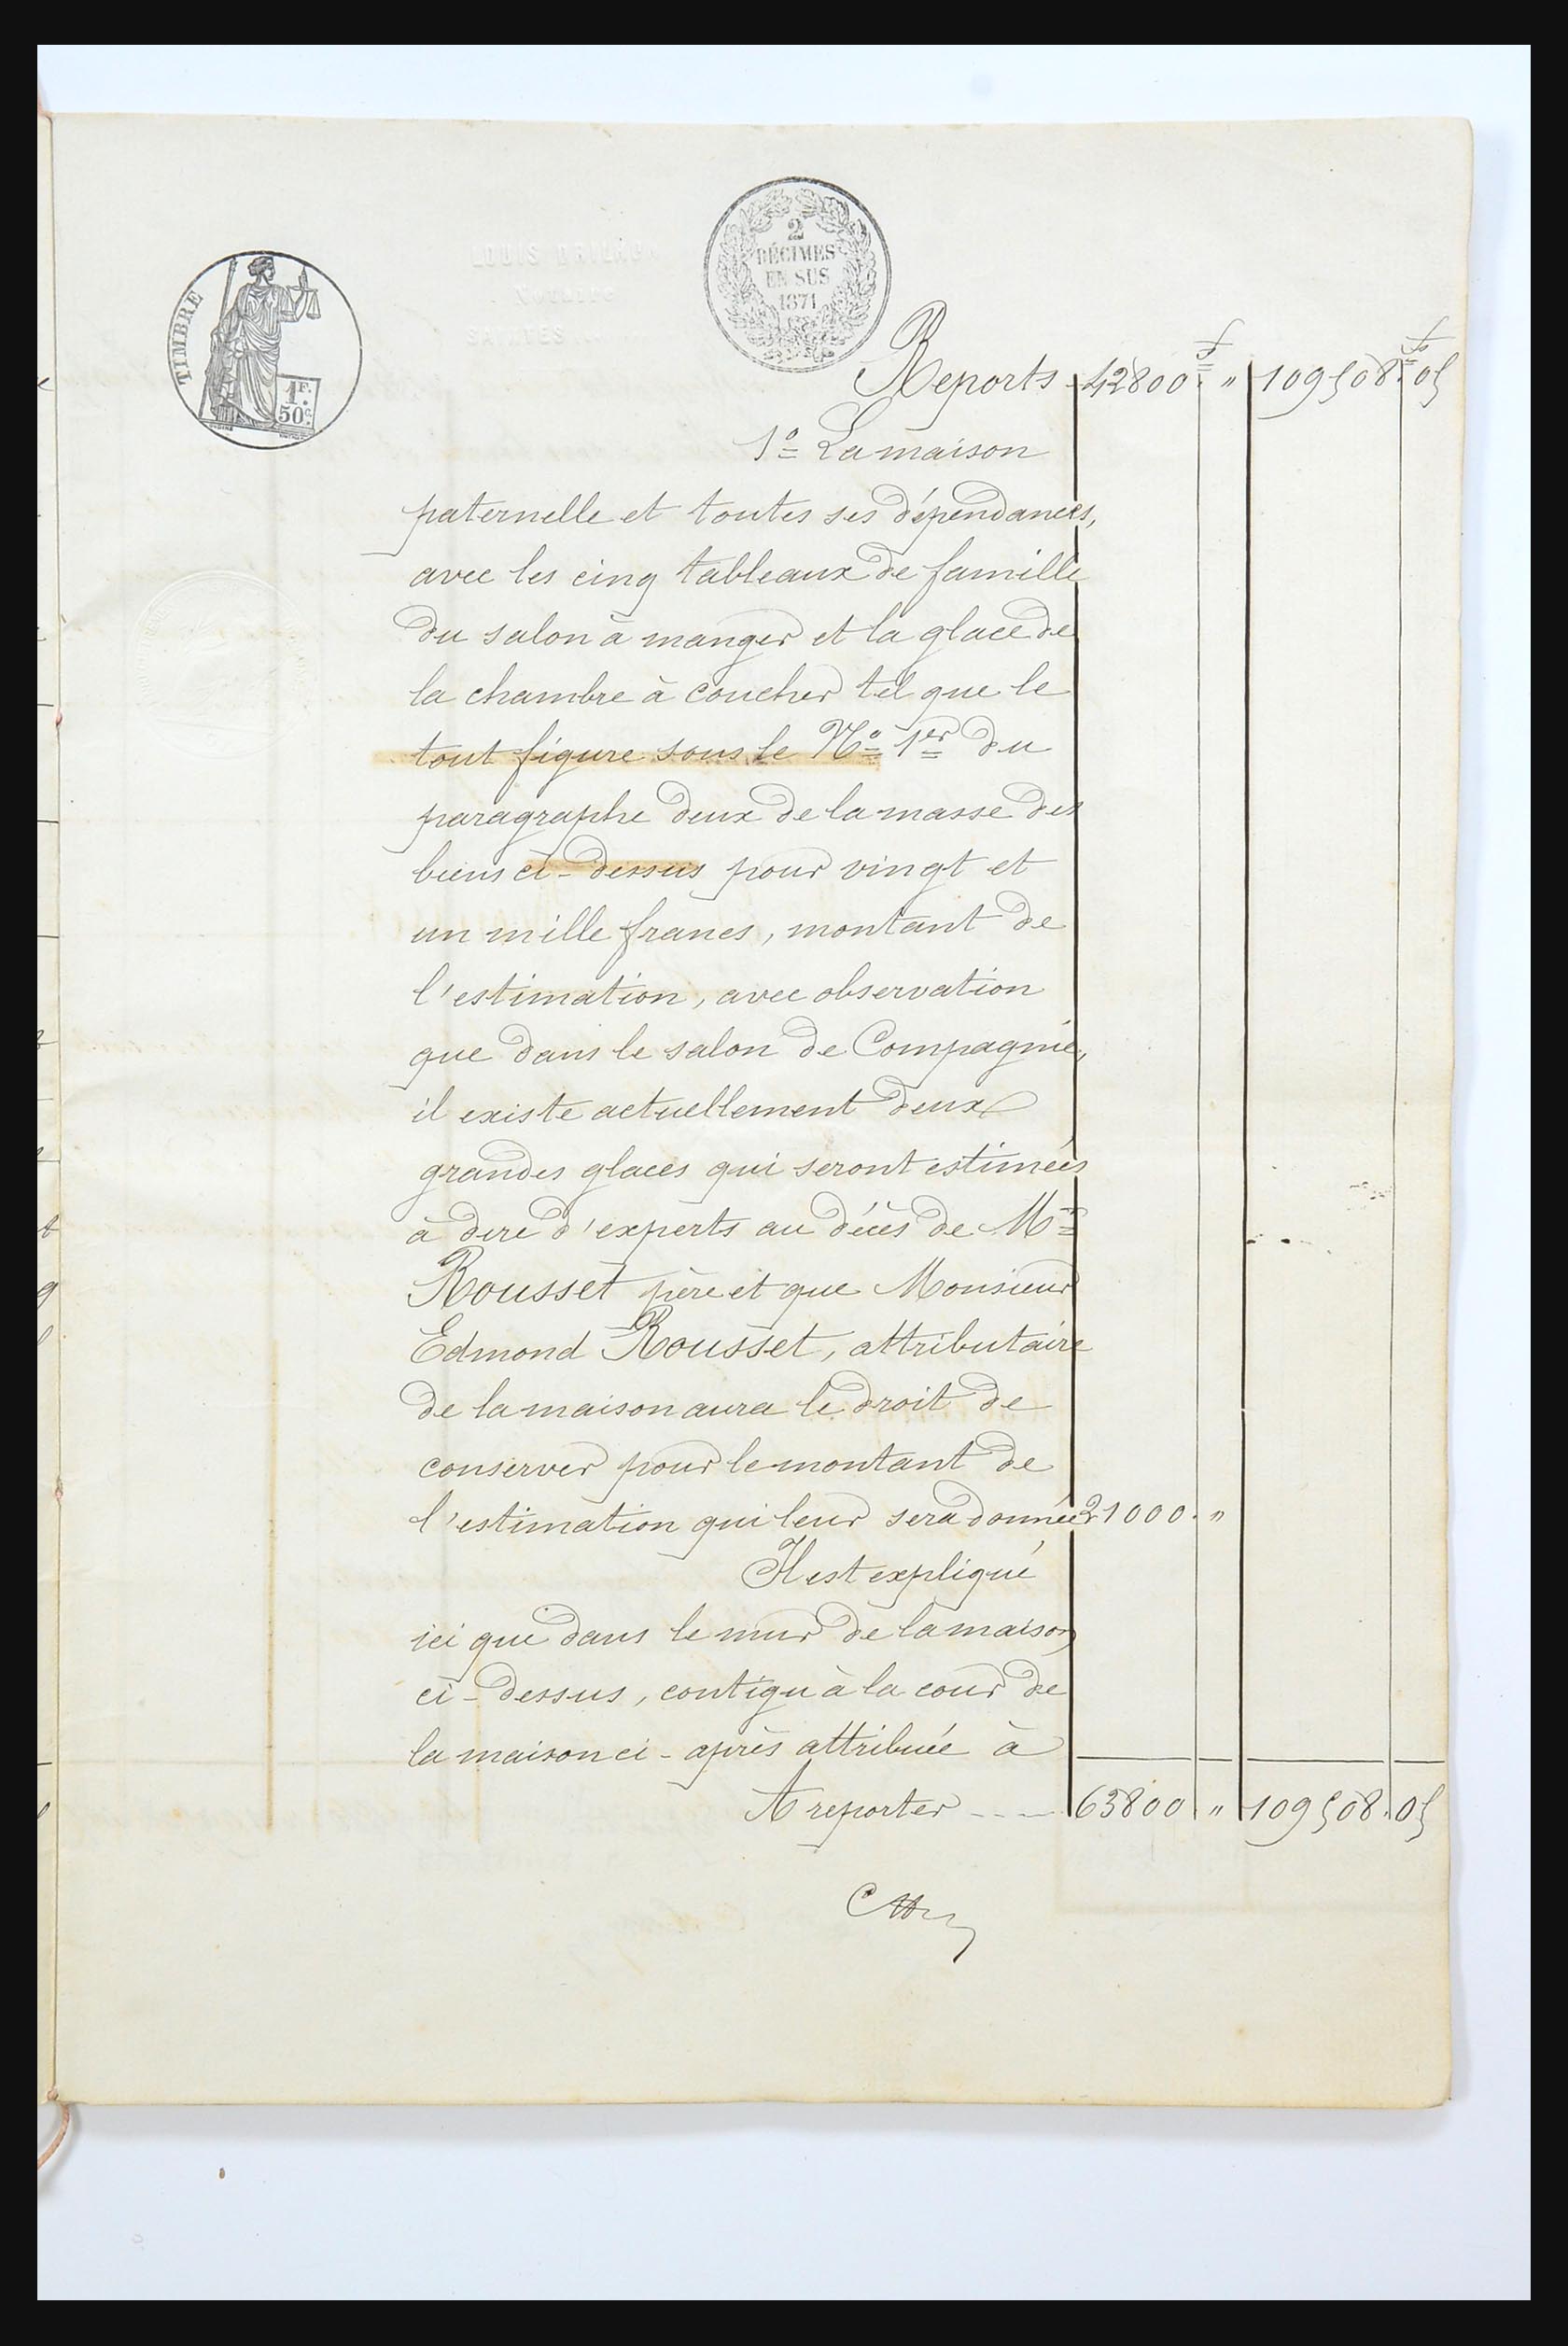 2
DÉCIMES
EN SUS
1871
TIMBRE
1F.
50c.
LOUIS
NOTAIRE
SAINTES
Reports 42800 f " 109508 f 05
1º La maison
paternelle et toutes ses dépendances,
avec les cinq tableaux de famille
du salon à manger et la glace de
la chambre à coucher tel que le
tout figure sous le Nº 1er du
paragraphe deux de la masse des
biens ci-dessus pour vingt et
un mille francs, montant de
l'estimation, avec observation
que dans le salon de Compagnie,
il existe actuellement deux
grandes glaces qui seront estimées
à dire d'experts au décès de Mr
Rousset père et que Monsieur
Edmond Rousset, attributaire
de la maison aura le droit de
conserver pour le montant de
l'estimation qui leur sera donnée 21000. "
Il est expliqué
ici que dans le mur de la maison
ci-dessus, contigu à la cour de
la maison ci-après attribuée à
A reporter --- 63800 " 109508.05